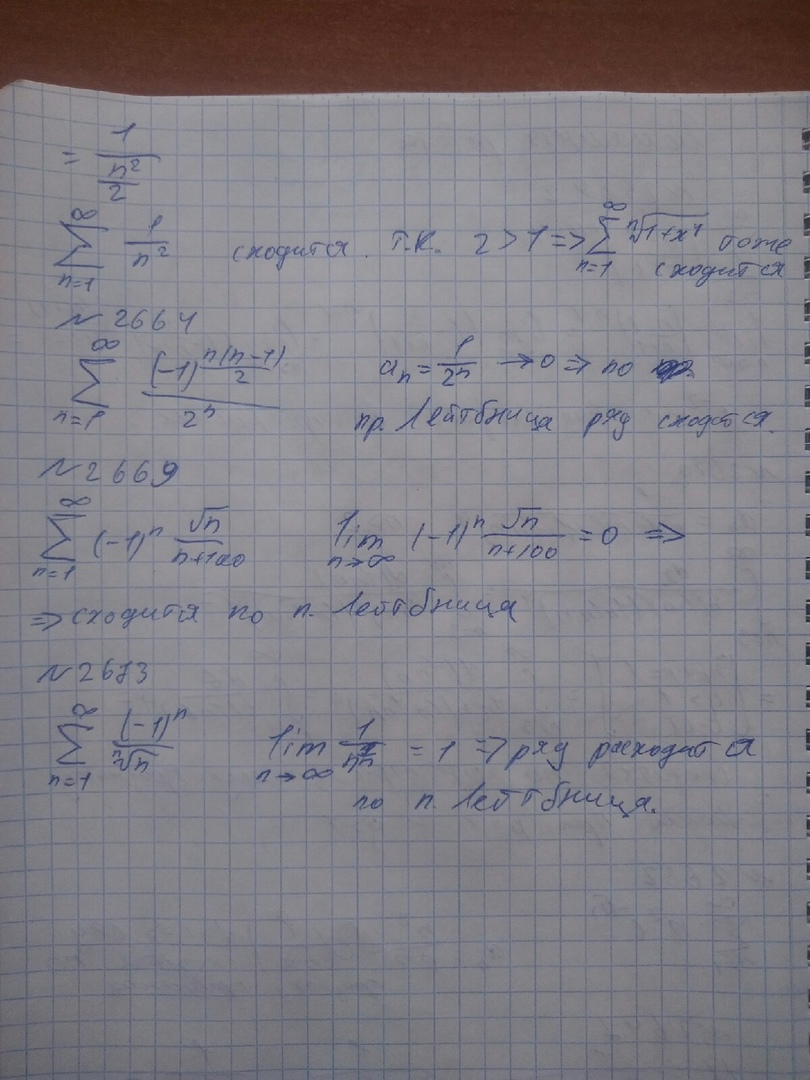 = 1/(n²/2)
∑_{n=1}^{∞} 1/n² сходится. т.к. 2 > 1 => ∑_{n=1}^{∞} ⁿ√(1+x⁴) тоже
сходится
№ 2664
∑_{n=1}^{∞} (-1)^{n(n-1)/2} / 2ⁿ aₙ = 1/2ⁿ → 0 => по
пр. Лейтбница ряд сходится.
№ 2669
∑_{n=1}^{∞} (-1)ⁿ √n/(n+100) lim_{n→∞} (-1)ⁿ √n/(n+100) = 0 =>
=> сходится по п. Лейтбница
№ 2673
∑_{n=1}^{∞} (-1)ⁿ/ⁿ√n lim_{n→∞} = 1 => ряд расходится
по п. Лейтбница.